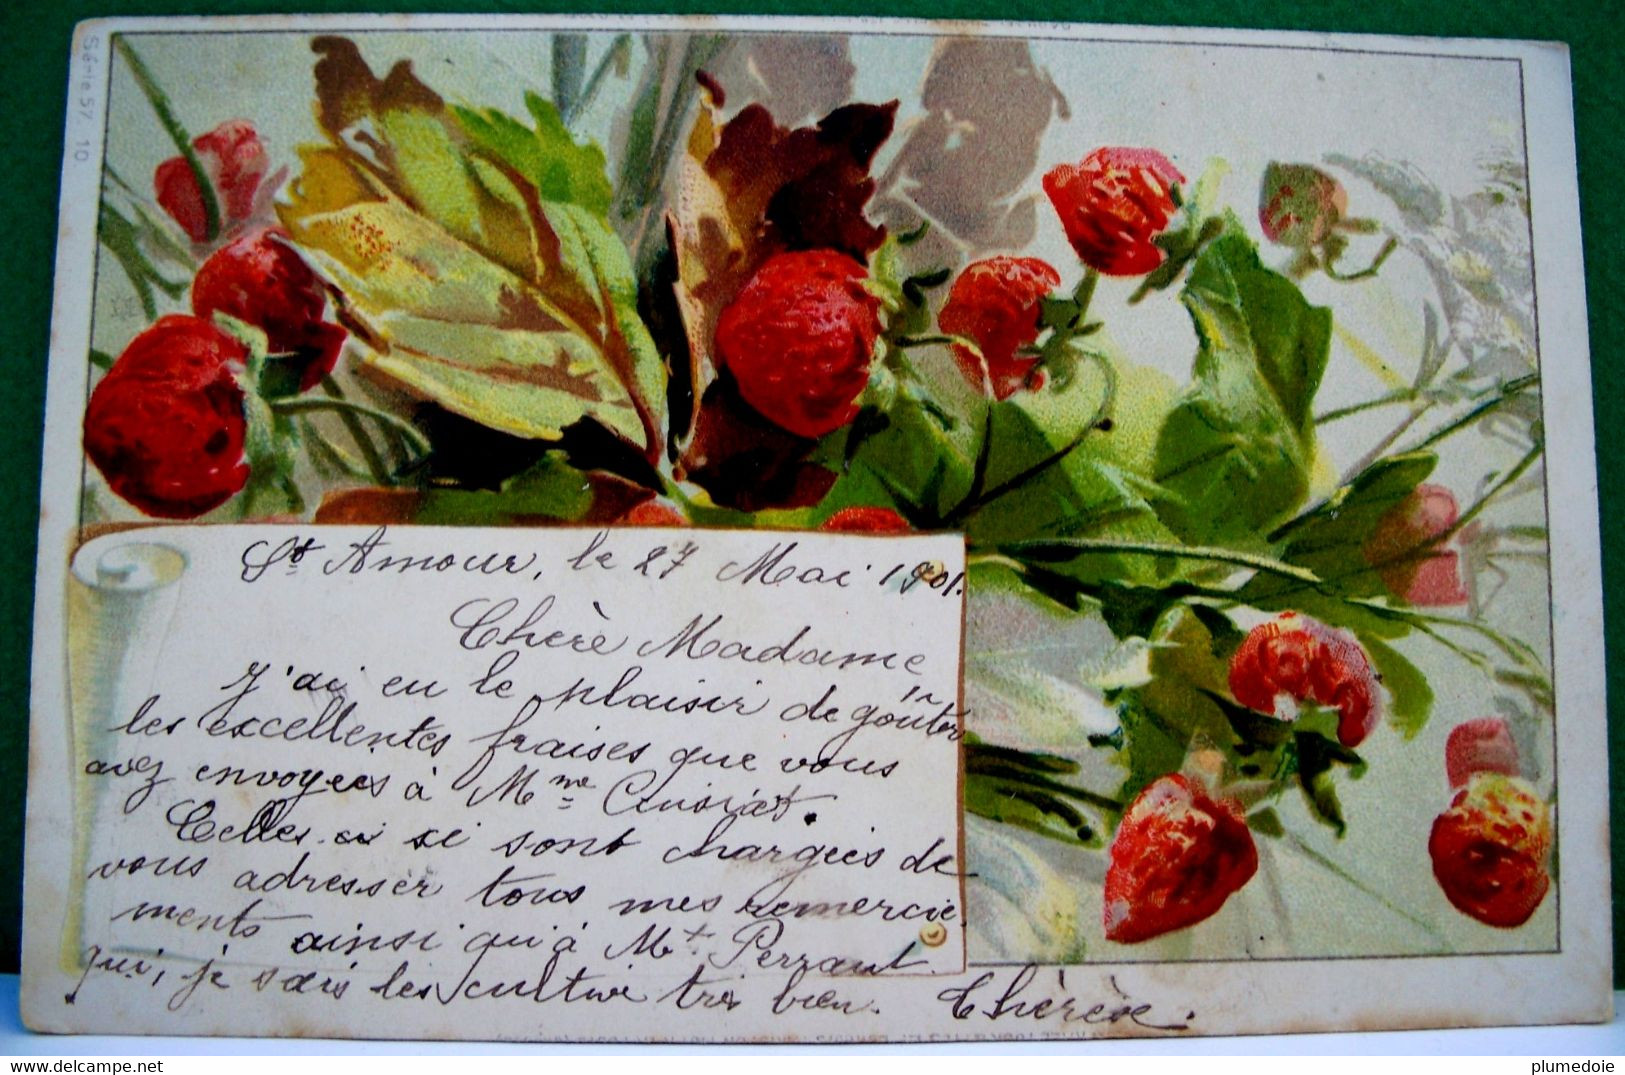 Série 57 10
St Amour, le 27 Mai 1901.
Chère Madame
J'ai eu le plaisir de goûter
les excellentes fraises que vous
avez envoyées à Mme Cuisiat.
Celles ci se sont chargées de
vous adresser tous mes remercie
ments ainsi qu'à Mr Perraut
qui, je sais les cultive très bien. Thérèse.
delcampe.net
plumedoie